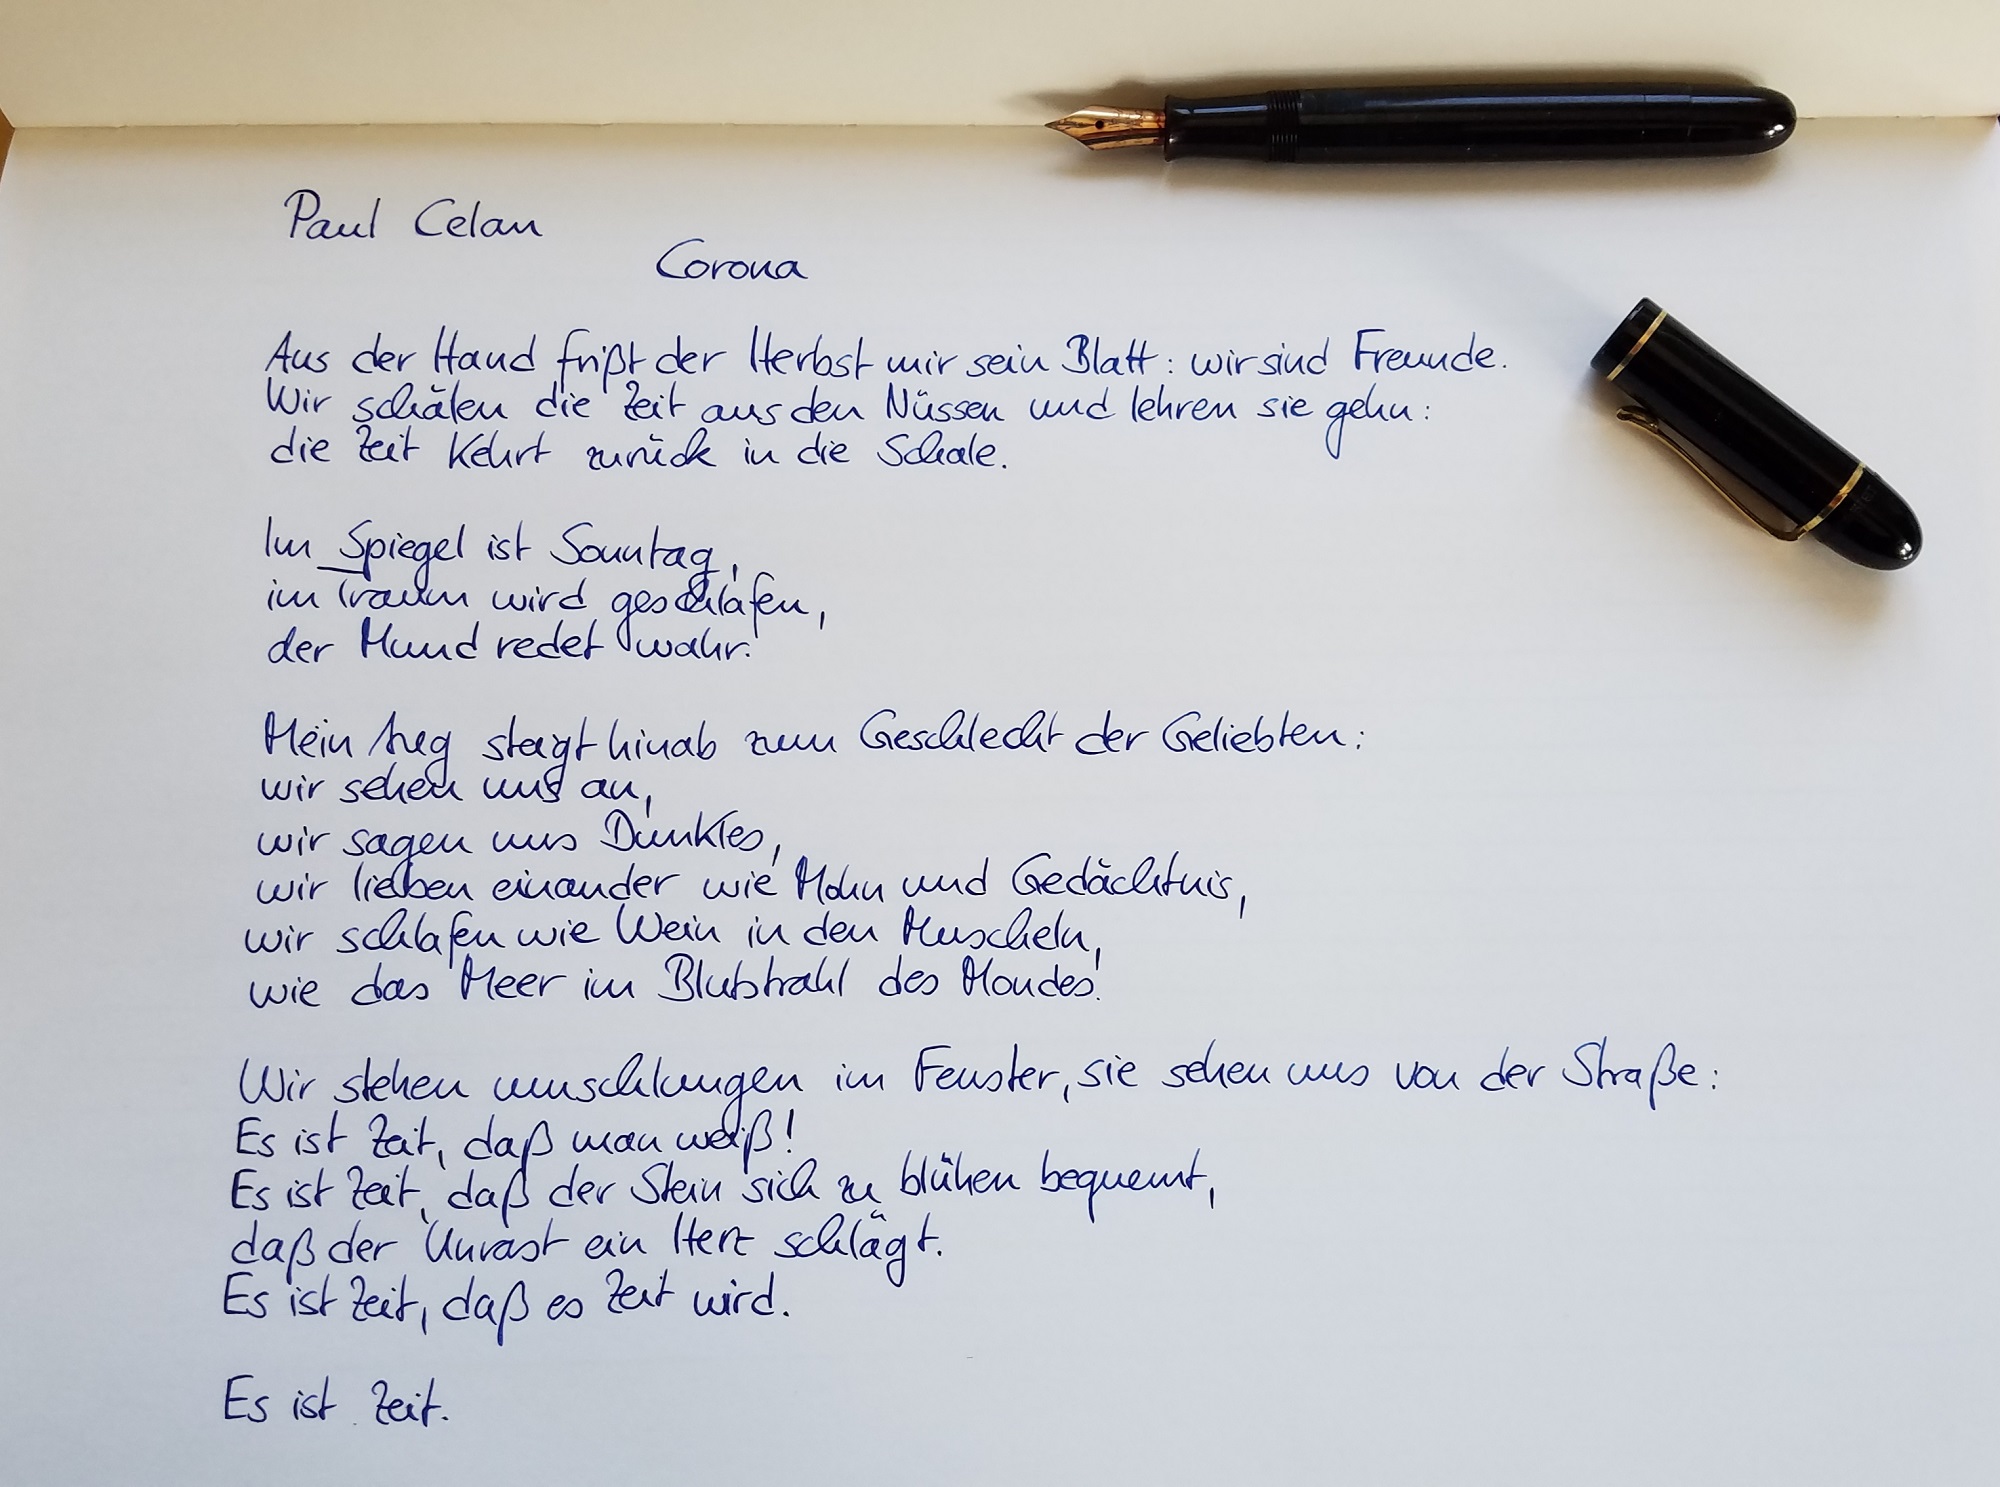 Paul Celan
Corona
Aus der Hand frißt der Herbst mir sein Blatt: wir sind Freunde.
Wir schälen die Zeit aus den Nüssen und lehren sie gehn:
die Zeit kehrt zurück in die Schale.
Im Spiegel ist Sonntag,
im Traum wird geschlafen,
der Mund redet wahr.
Mein Aug steigt hinab zum Geschlecht der Geliebten:
wir sehen uns an,
wir sagen uns Dunkles,
wir lieben einander wie Mohn und Gedächtnis,
wir schlafen wie Wein in den Muscheln,
wie das Meer im Blutstrahl des Mondes.
Wir stehen umschlungen im Fenster, sie sehen uns von der Straße:
Es ist Zeit, daß man weiß!
Es ist Zeit, daß der Stein sich zu blühen bequemt,
daß der Unrast ein Herz schlägt.
Es ist Zeit, daß es Zeit wird.
Es ist Zeit.